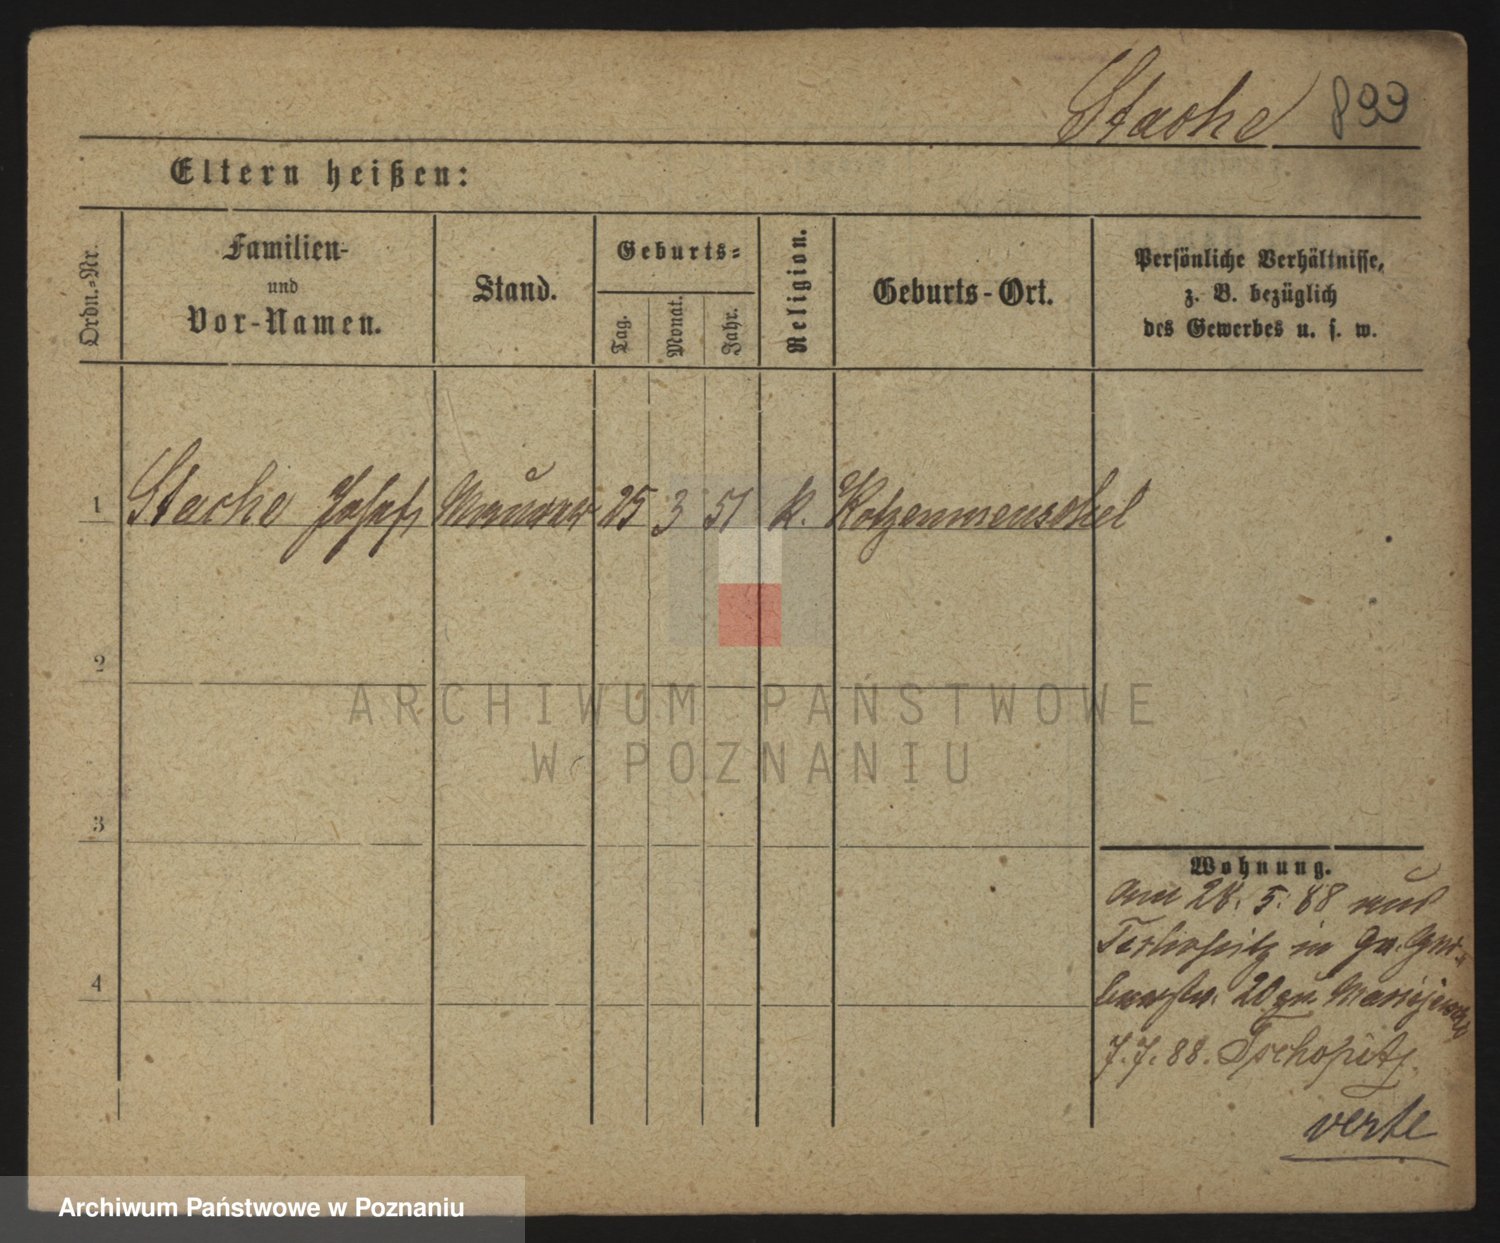 Stache 899
Eltern heißen:
Ordn.-Nr.
Familien-
und
Vor-Namen.
Stand.
Geburts-
Tag.
Monat.
Jahr.
Religion.
Geburts-Ort.
Persönliche Verhältnisse,
z. B. bezüglich
des Gewerbes u. s. w.
1 Stache Josef Maurer 25 3 51 k. Kotzenmeuschel
2
3
4
Wohnung.
am 28. 5. 88 aus
in Gr. Ger-
berstr. 20 zu
7. 7. 88. Tschopitz
verte
ARCHIWUM PAŃSTWOWE
W POZNANIU
Archiwum Państwowe w Poznaniu